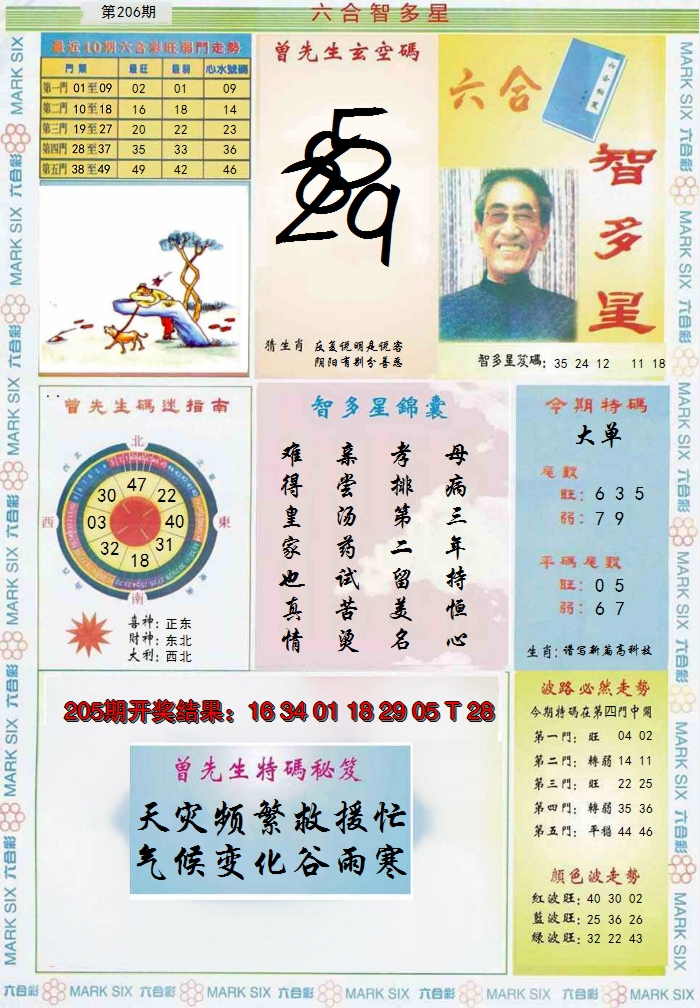 第206期
六合智多星
最近10期六合彩旺弱門走勢
門類 最旺 最弱 心水號碼
第一門 01至09 02 01 09
第二門 10至18 16 18 14
第三門 19至27 20 22 23
第四門 28至37 35 33 36
第五門 38至49 49 42 46
曾先生玄空碼
猜生肖
反复说明是说客
阴阳有别分善恶
六合
智多星
智多星笈碼：35 24 12 11 18
曾先生碼迷指南
北
西
東
南
47
22
40
31
18
32
03
30
喜神：正东
财神：东北
大利：西北
智多星錦囊
母病三年持恒心
孝排第二留美名
亲尝汤药试苦烫
难得皇家也真情
今期特碼
大单
尾數
旺：6 3 5
弱：7 9
平碼尾數
旺：0 5
弱：6 7
生肖：谱写新篇高科技
205期开奖结果：16 34 01 18 29 05 T 28
曾先生特碼秘笈
天灾频繁救援忙
气候变化谷雨寒
波路必然走勢
今期特碼在第四門中開
第一門：旺 04 02
第二門：轉弱 14 11
第三門：旺 22 25
第四門：轉弱 35 36
第五門：平穩 44 46
顏色波走勢
紅波旺：40 30 02
藍波旺：25 36 26
綠波旺：32 22 43
六合彩 MARK SIX 六合彩 MARK SIX 六合彩 MARK SIX 六合彩 MARK SIX 六合彩 MARK SIX